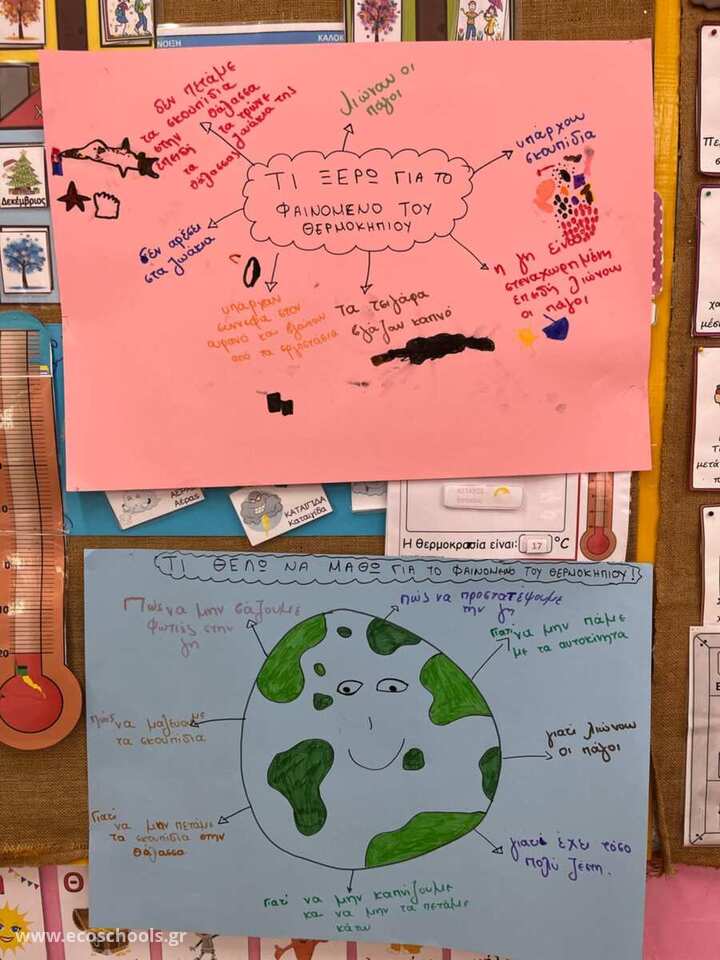 ΝΟΙΞΗ
ΚΑΛΟΚ
Δεκέμβριος
δεν πετάμε
τα σκουπίδια
στην θάλασσα
επειδή τα τρώνε
τα ζωάκια της
θάλασσας
Λιώνουν οι
πάγοι
υπάρχουν
σκουπίδια
ΤΙ ΞΕΡΩ ΓΙΑ ΤΟ
ΦΑΙΝΟΜΕΝΟ ΤΟΥ
ΘΕΡΜΟΚΗΠΙΟΥ
δεν αρέσει
στα ζωάκια
υπάρχουν
σύννεφα στον
ουρανό και βγαίνουν
από τα εργοστάσια
τα τσιγάρα
βγάζουν καπνό
η γη είναι
στεναχωρημένη
επειδή λιώνουν
οι πάγοι
Αέρας
ΚΑΤΑΙΓΙΔΑ
Καταιγίδα
Η θερμοκρασία είναι: 17 °C
ΤΙ ΘΕΛΩ ΝΑ ΜΑΘΩ ΓΙΑ ΤΟ ΦΑΙΝΟΜΕΝΟ ΤΟΥ ΘΕΡΜΟΚΗΠΙΟΥ!
Πώς να μην βάζουμε
φωτιές στην
γη
πώς να προστατέψουμε
την γη
Γιατί να μην πάμε
με τα αυτοκίνητα
πώς να μαζεύουμε
τα σκουπίδια
γιατί λιώνουν
οι πάγοι
Γιατί
να μην πετάμε
τα σκουπίδια στην
θάλασσα
γιατί έχει τόσο
πολύ ζέστη.
Γιατί να μην καπνίζουμε
και να μην τα πετάμε
κάτω
www.ecoschools.gr